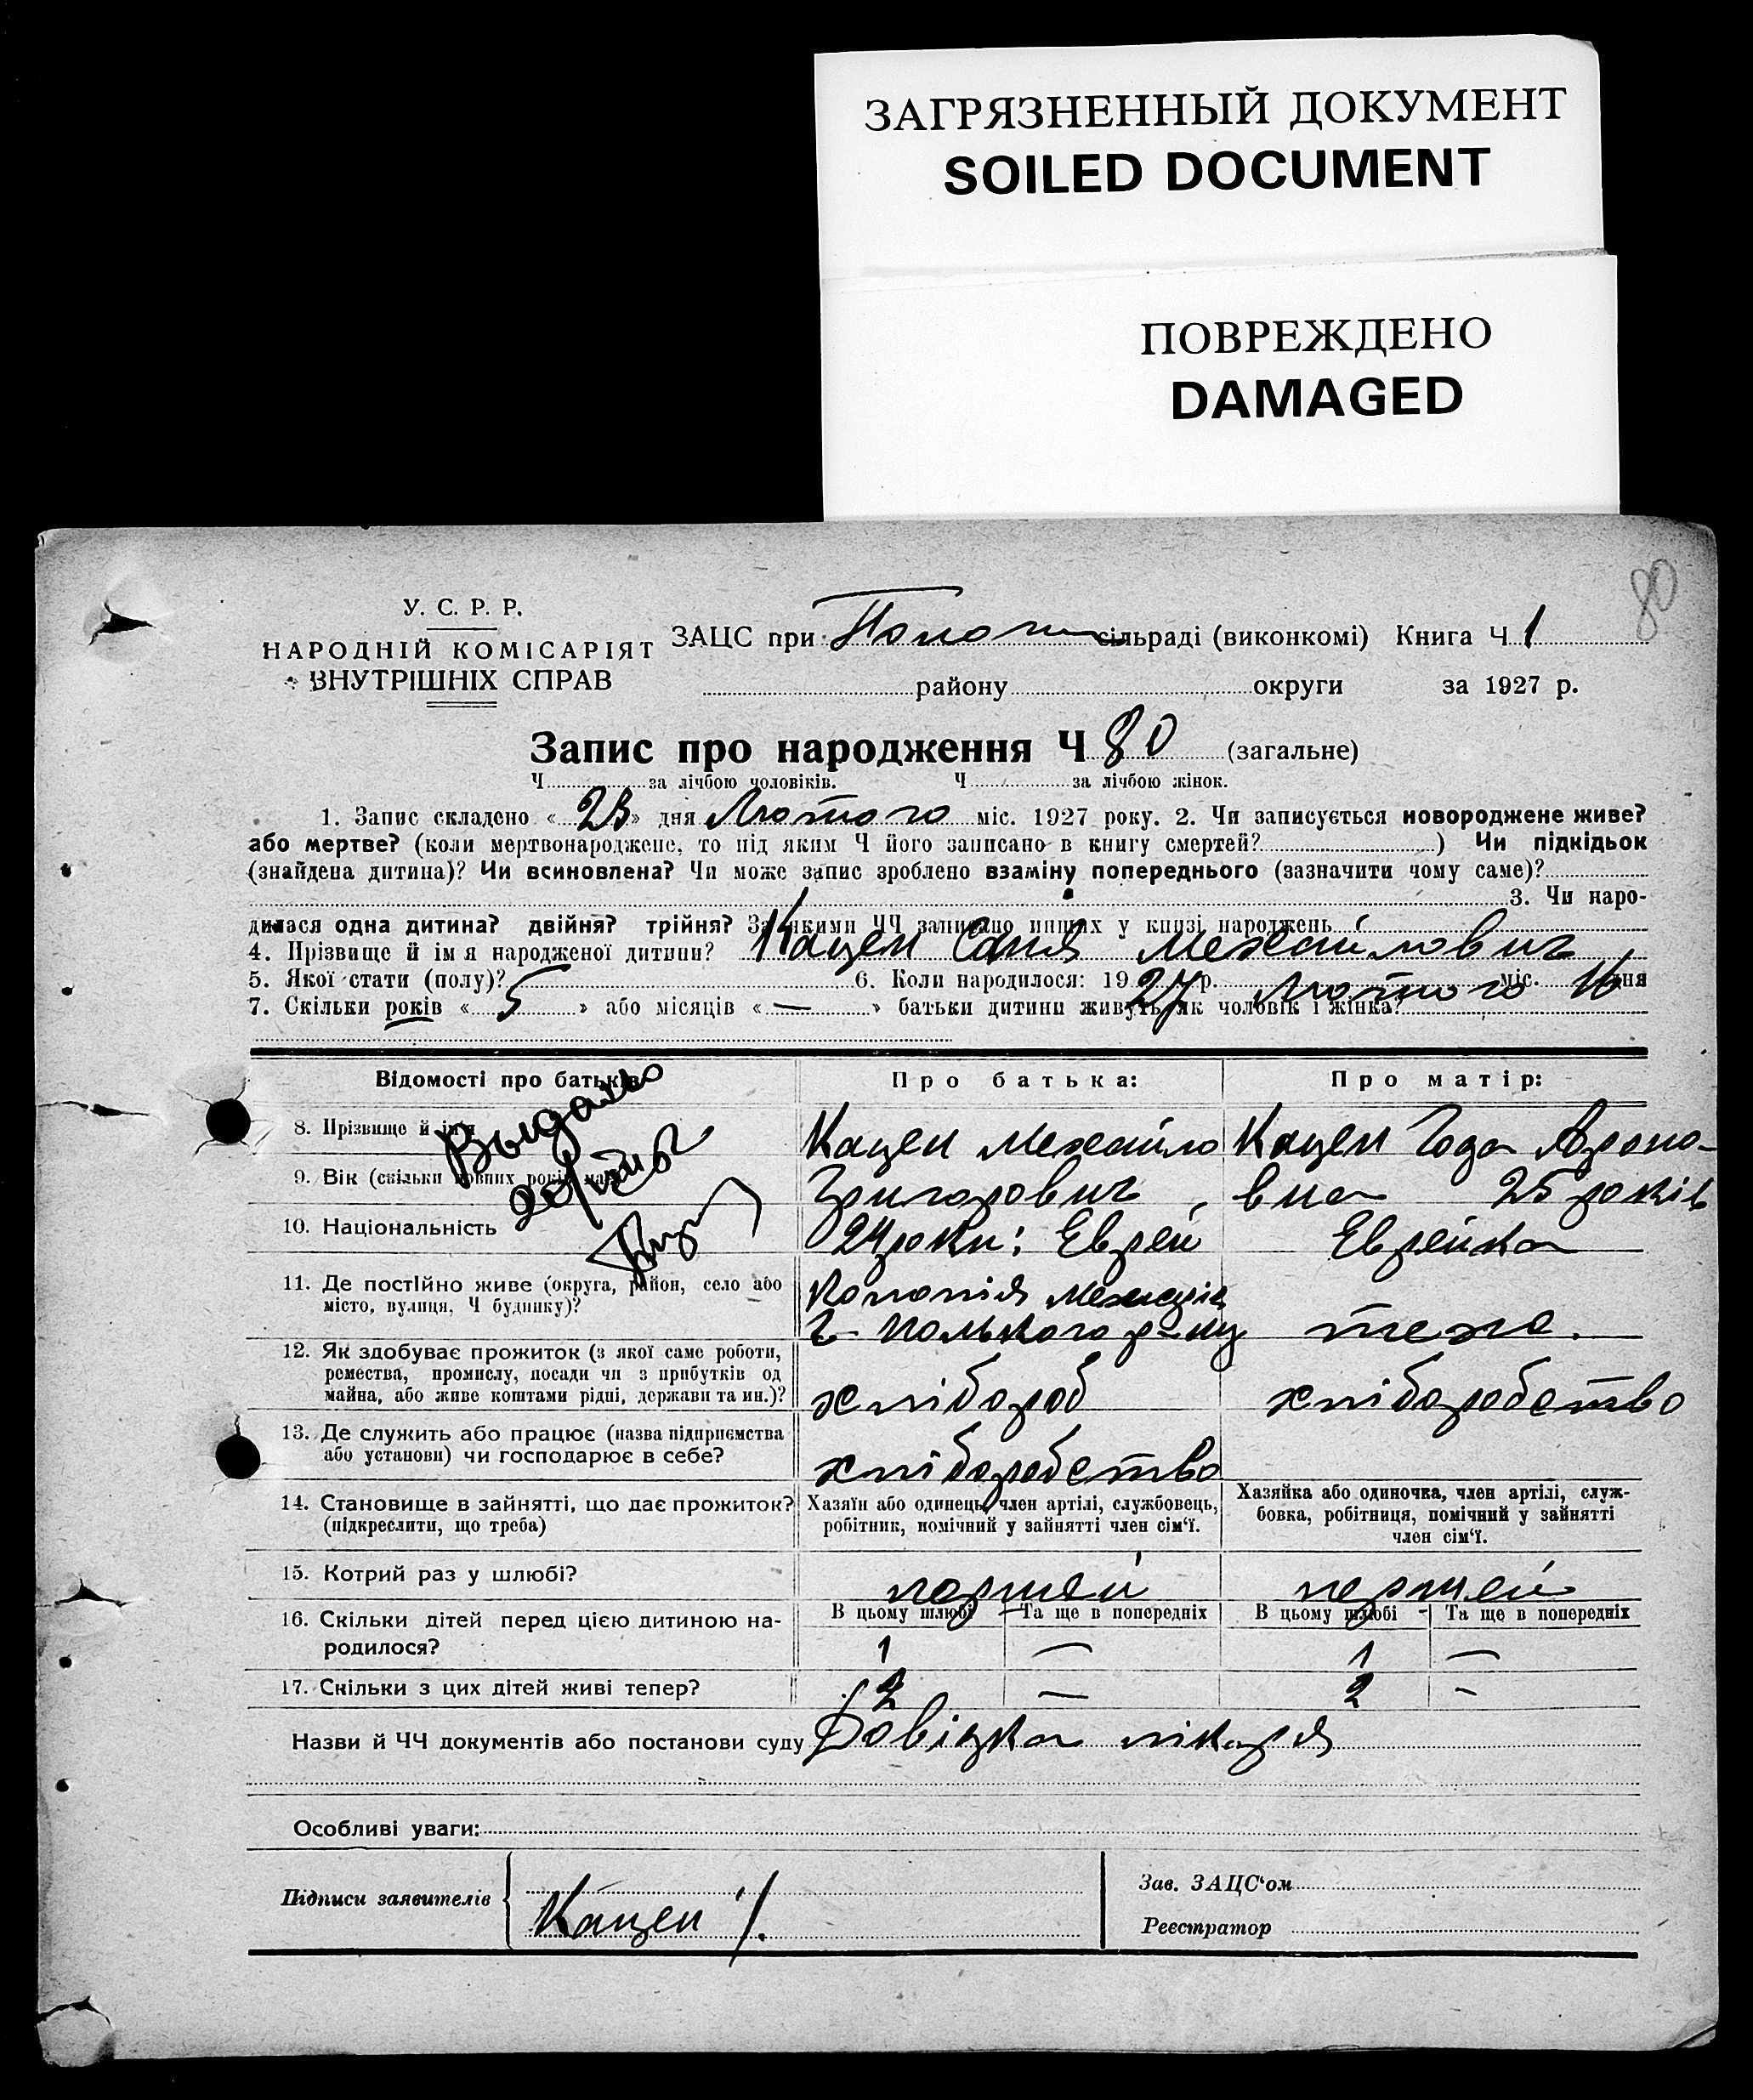 ЗАГРЯЗНЕННЫЙ ДОКУМЕНТ
SOILED DOCUMENT
ПОВРЕЖДЕНО
DAMAGED
80
У. С. Р. Р.
НАРОДНІЙ КОМІСАРІЯТ
ВНУТРІШНІХ СПРАВ
ЗАЦС при сільраді (виконкомі) Книга Ч 1
району округи за 1927 р.
Запис про народження Ч 80 (загальне)
Ч за лічбою чоловіків. Ч за лічбою жінок.
1. Запис складено « 23 » дня Лютого міс. 1927 року. 2. Чи записується новороджене живе?
або мертве? (коли мертвонароджене, то під яким Ч його записано в книгу смертей? ) Чи підкідьок
(знайдена дитина)? Чи всиновлена? Чи може запис зроблено взаміну попереднього (зазначити чому саме)?
3. Чи наро-
дилася одна дитина? двійня? трійня? За якими ЧЧ записано инших у книзі народжень
4. Прізвище й ім'я народженої дитини? Кацен Михайлович
5. Якої стати (полу)? 6. Коли народилося: 1927 р. Лютого міс. 16 дня
7. Скільки років « 5 » або місяців « — » батьки дитини живуть як чоловік і жінка?
Відомості про батьків Про батька: Про матір:
Выдано
8. Прізвище й ім'я Кацен Михайло Кацен Года Ароно-
9. Вік (скільки повних років має) Григорович вна 25 років
10. Національність 24 роки; Еврей Еврейка
11. Де постійно живе (округа, район, село або
місто, вулиця, Ч будинку)?
Колонія
теж.
12. Як здобуває прожиток (з якої саме роботи,
ремества, промислу, посади чи з прибутків од
майна, або живе коштами рідні, держави та ин.)?
хлібороб хліборобство
13. Де служить або працює (назва підприємства
або установи) чи господарює в себе?
хліборобство
14. Становище в зайнятті, що дає прожиток?
(підкреслити, що треба)
Хазяїн або одинець, член артілі, службовець,
робітник, помічний у зайнятті член сім'ї.
Хазяйка або одиночка, член артілі, служ-
бовка, робітниця, помічний у зайнятті
член сім'ї.
15. Котрий раз у шлюбі? первий первий
16. Скільки дітей перед цією дитиною на-
родилося?
В цьому шлюбі Та ще в попередніх В цьому шлюбі Та ще в попередніх
1 — 1 —
17. Скільки з цих дітей живі тепер? 2 — 2 -
Назви й ЧЧ документів або постанови суду Довідка лікаря
Особливі уваги:
Підписи заявителів
Кацен
Зав. ЗАЦС'ом
Реєстратор